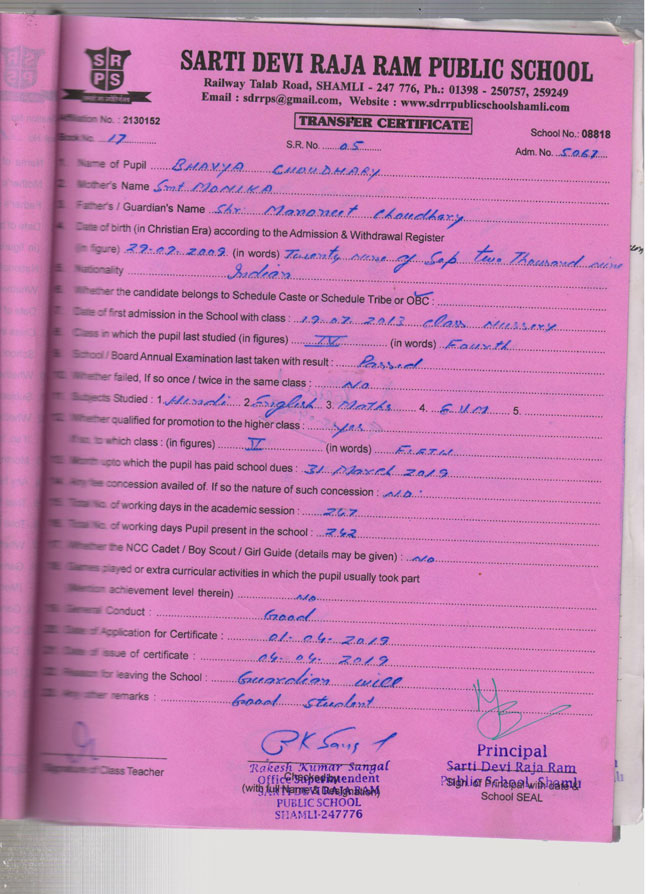 SRPS
SARTI DEVI RAJA RAM PUBLIC SCHOOL
Railway Talab Road, SHAMLI - 247 776, Ph.: 01398 - 250757, 259249
Email : sdrrps@gmail.com, Website : www.sdrrpublicschoolshamli.com
TRANSFER CERTIFICATE
Affiliation No. : 2130152
School No.: 08818
Book No. 17 S.R. No. 05 Adm. No. 5067
1. Name of Pupil BHAVYA CHOUDHARY
2. Mother's Name Smt MONIKA
3. Father's / Guardian's Name Shri Manoneet Choudhary
4. Date of birth (in Christian Era) according to the Admission & Withdrawal Register
(in figure) 29.09.2009 (in words) Twenty nine of Sep two Thousand nine
5. Nationality Indian
6. Whether the candidate belongs to Schedule Caste or Schedule Tribe or OBC :
7. Date of first admission in the School with class : 19.07.2013 class Nussery
8. Class in which the pupil last studied (in figures) IV (in words) Fourth
9. School / Board Annual Examination last taken with result : Passed
10. Whether failed, If so once / twice in the same class : NO
11. Subjects Studied : 1. Hindi 2. English 3. Maths 4. E.V.M 5.
12. Whether qualified for promotion to the higher class : yes
If so, to which class : (in figures) V (in words) FIFTH
13. Month upto which the pupil has paid school dues : 31 March 2019
14. Any fee concession availed of. If so the nature of such concession : NO
15. Total No. of working days in the academic session : 247
16. Total No. of working days Pupil present in the school : 242
17. Whether the NCC Cadet / Boy Scout / Girl Guide (details may be given) : NO
18. Games played or extra curricular activities in which the pupil usually took part
(Mention achievement level therein) NO
19. General Conduct : Good
20. Date of Application for Certificate : 01.04.2019
21. Date of issue of certificate : 04.04.2019
22. Reason for leaving the School : Guardian will
23. Any other remarks : Good student
Signature of Class Teacher
Rakesh Kumar Sangal
Checked by
Office Superintendent
(with full Name & Designation)
SARTI DEVI RAJA RAM
PUBLIC SCHOOL
SHAMLI-247776
Principal
Sarti Devi Raja Ram
Public School, Shamli
Sign of Principal with date &
School SEAL